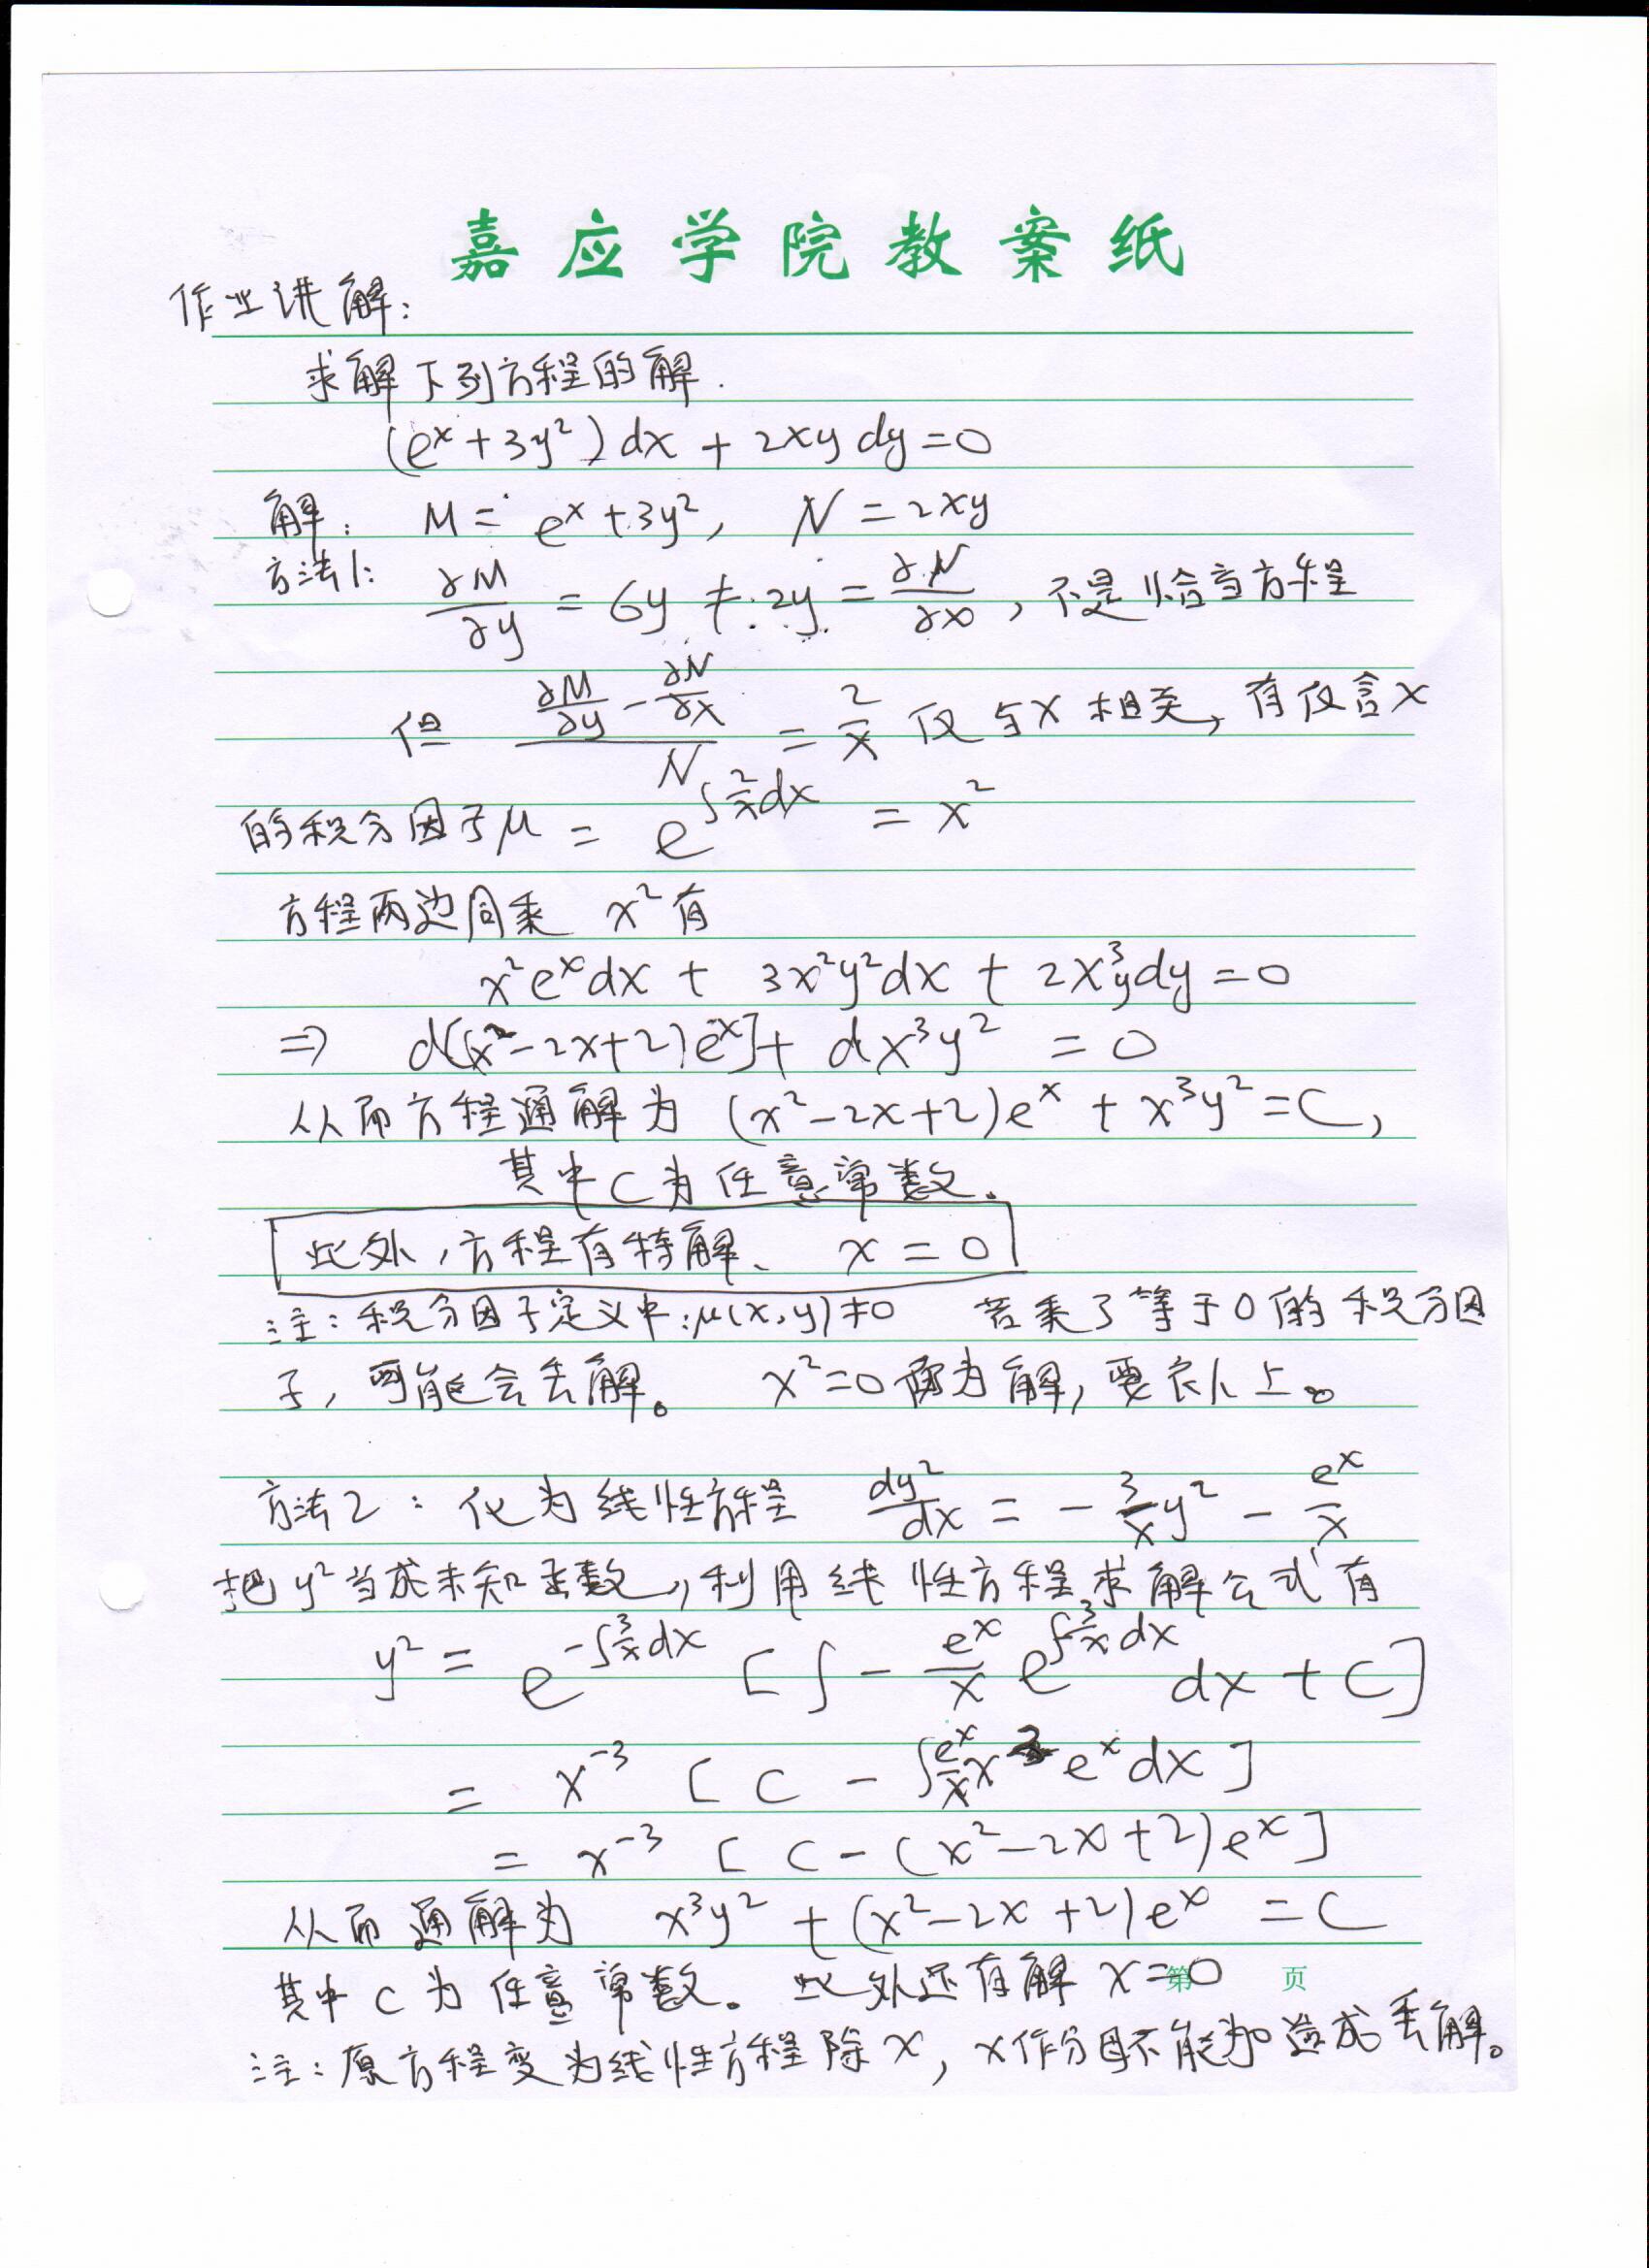 嘉应学院教案纸
作业讲解：
求解下列方程的解.
(e^x + 3y^2) dx + 2xy dy = 0
解： M = e^x + 3y^2, N = 2xy
方法1: ∂M/∂y = 6y ≠ 2y = ∂N/∂x , 不是恰当方程
但 (∂M/∂y - ∂N/∂x)/N = 2/x 仅与x相关, 有仅含x
的积分因子μ = e^{∫2/x dx} = x^2
方程两边同乘 x^2 有
x^2 e^x dx + 3x^2 y^2 dx + 2x^3 y dy = 0
⇒ d[(x^2 - 2x + 2) e^x] + d x^3 y^2 = 0
从而方程通解为 (x^2 - 2x + 2) e^x + x^3 y^2 = C,
其中C为任意常数。
此外, 方程有特解、 x = 0
注：积分因子定义中: μ(x, y) ≠ 0 若乘了等于0的积分因
子, 可能会丢解。 x^2 = 0 为解, 要补上。
方法2： 化为线性方程 dy^2/dx = - 3/x y^2 - e^x/x
把y^2当成未知函数, 利用线性方程求解公式有
y^2 = e^{-∫3/x dx} [∫ - e^x/x e^{∫3/x dx} dx + C]
= x^{-3} [C - ∫ e^x/x x^3 e^x dx]
= x^{-3} [C - (x^2 - 2x + 2) e^x]
从而通解为 x^3 y^2 + (x^2 - 2x + 2) e^x = C
其中C为任意常数。此外还有解 x = 0
第 页
注：原方程变为线性方程除x, x作分母不能为0造成丢解。